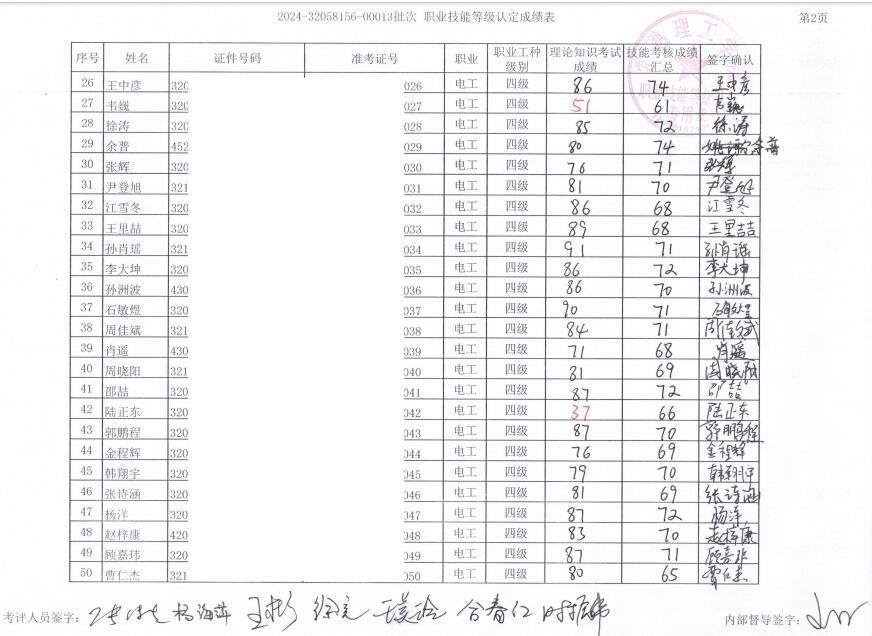 2024-32058156-00013批次 职业技能等级认定成绩表 第2页
序号 姓名 证件号码 准考证号 职业 职业工种级别 理论知识考试成绩 技能考核成绩汇总 签字确认
26 王中彦 320 026 电工 四级 86 74 王中彦
27 韦巍 320 027 电工 四级 51 61 韦巍
28 徐涛 320 028 电工 四级 85 72 徐涛
29 余普 452 029 电工 四级 80 74 余普
30 张辉 320 030 电工 四级 76 71 张辉
31 尹登旭 321 031 电工 四级 81 70 尹登旭
32 江雪冬 320 032 电工 四级 86 68 江雪冬
33 王里喆 320 033 电工 四级 89 68 王里喆
34 孙肖瑶 321 034 电工 四级 91 71 孙肖瑶
35 李大坤 320 035 电工 四级 86 72 李大坤
36 孙洲波 430 036 电工 四级 86 70 孙洲波
37 石敏煜 320 037 电工 四级 90 71 石敏煜
38 周佳斌 321 038 电工 四级 84 71 周佳斌
39 肖遥 430 039 电工 四级 71 68 肖遥
40 周晓阳 321 040 电工 四级 81 69 周晓阳
41 邵喆 320 041 电工 四级 87 72 邵喆
42 陆正东 320 042 电工 四级 37 66 陆正东
43 郭鹏程 320 043 电工 四级 87 70 郭鹏程
44 金程辉 320 044 电工 四级 76 69 金程辉
45 韩翔宇 320 045 电工 四级 79 70 韩翔宇
46 张诗涵 320 046 电工 四级 81 69 张诗涵
47 杨洋 320 047 电工 四级 87 72 杨洋
48 赵梓康 420 048 电工 四级 83 70 赵梓康
49 顾嘉玮 320 049 电工 四级 87 71 顾嘉玮
50 曹仁杰 321 050 电工 四级 80 65 曹仁杰
考评人员签字： 杨海萍 王彬 内部督导签字：